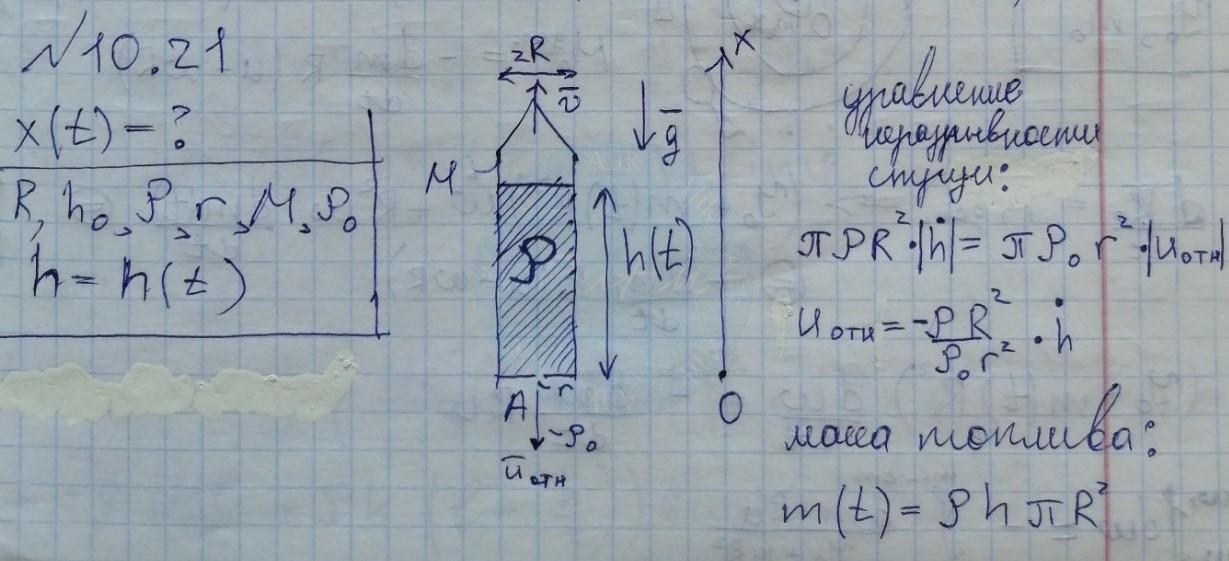 №10.21
x(t) = ?
R, h₀, ρ, r, M, ρ₀
h = h(t)
2R
v̄
M
ρ
h(t)
A
r
ρ₀
ū отн
ḡ
x
O
уравнение
неразрывности
струи:
πρR²·|ḣ| = πρ₀r²·|u отн|
u отн = -ρR²/ρ₀r² · ḣ
масса топлива:
m(t) = ρhπR²